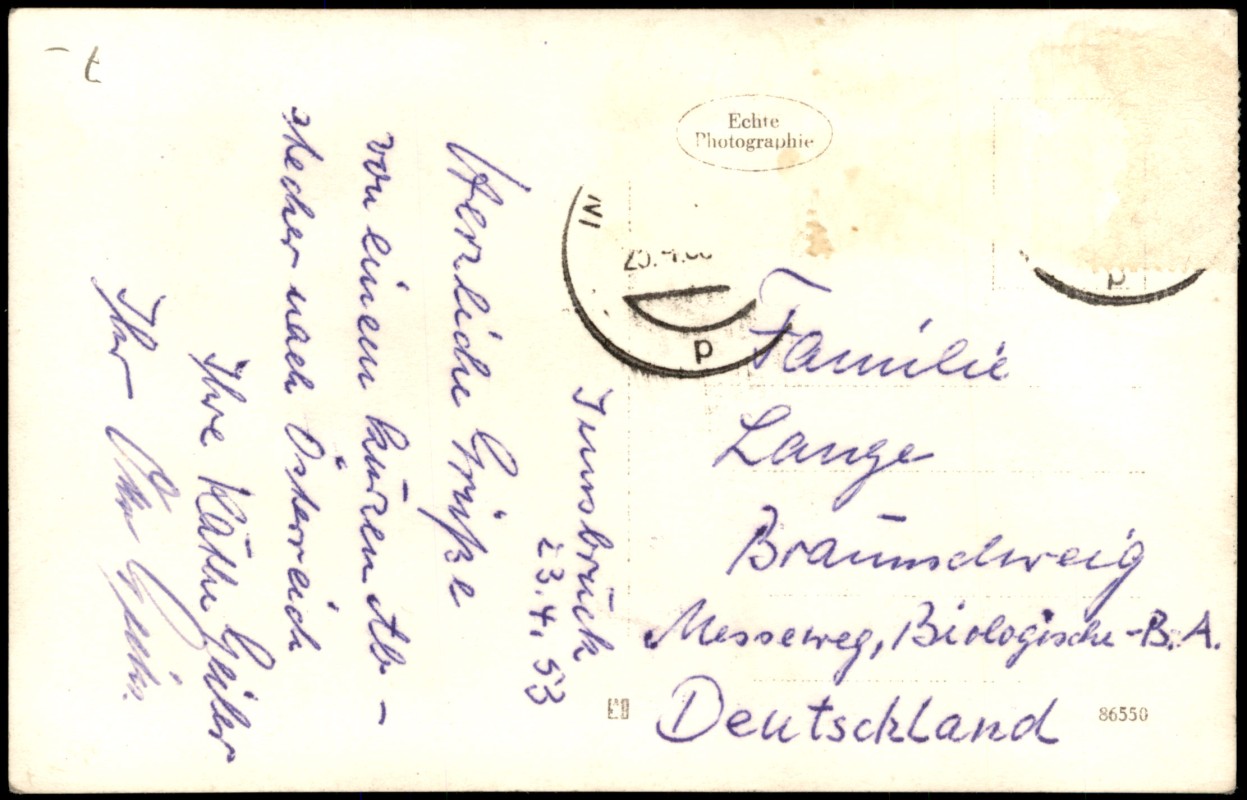 Echte
Photographie
Innsbruck
23.4.53
Herzliche Grüße
von einem kurzen Ab-
stecher nach Österreich
Ihre Käthe
Ihr
Familie
Lange
Braunschweig
Messeweg, Biologische-B.A.
Deutschland
86550
VI
p
p
t